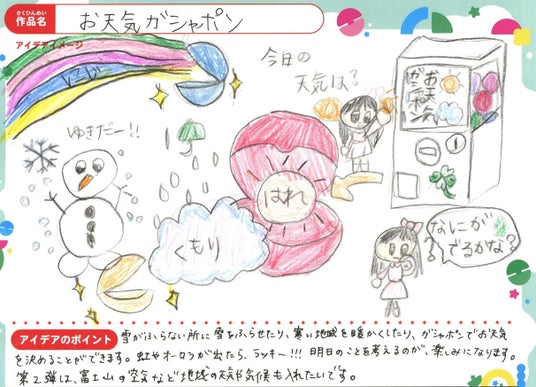 さくひんめい
作品名
お天気ガシャポン
アイデアイメージ
にじ
今日の
天気は？
お天気
ガシャポン
ゆきだー!!
はれ
くもり
なにが
でるかな？
アイデアのポイント
雪がふらない所に雪をふらせたり、寒い地域を暖かくしたり、ガシャポンでお天気
を決めることができます。虹やオーロラが出たら、ラッキー!!! 明日のことを考えるのが、楽しみになります。
第2弾は、富士山の空気など地域の天気や気候も入れたいです。